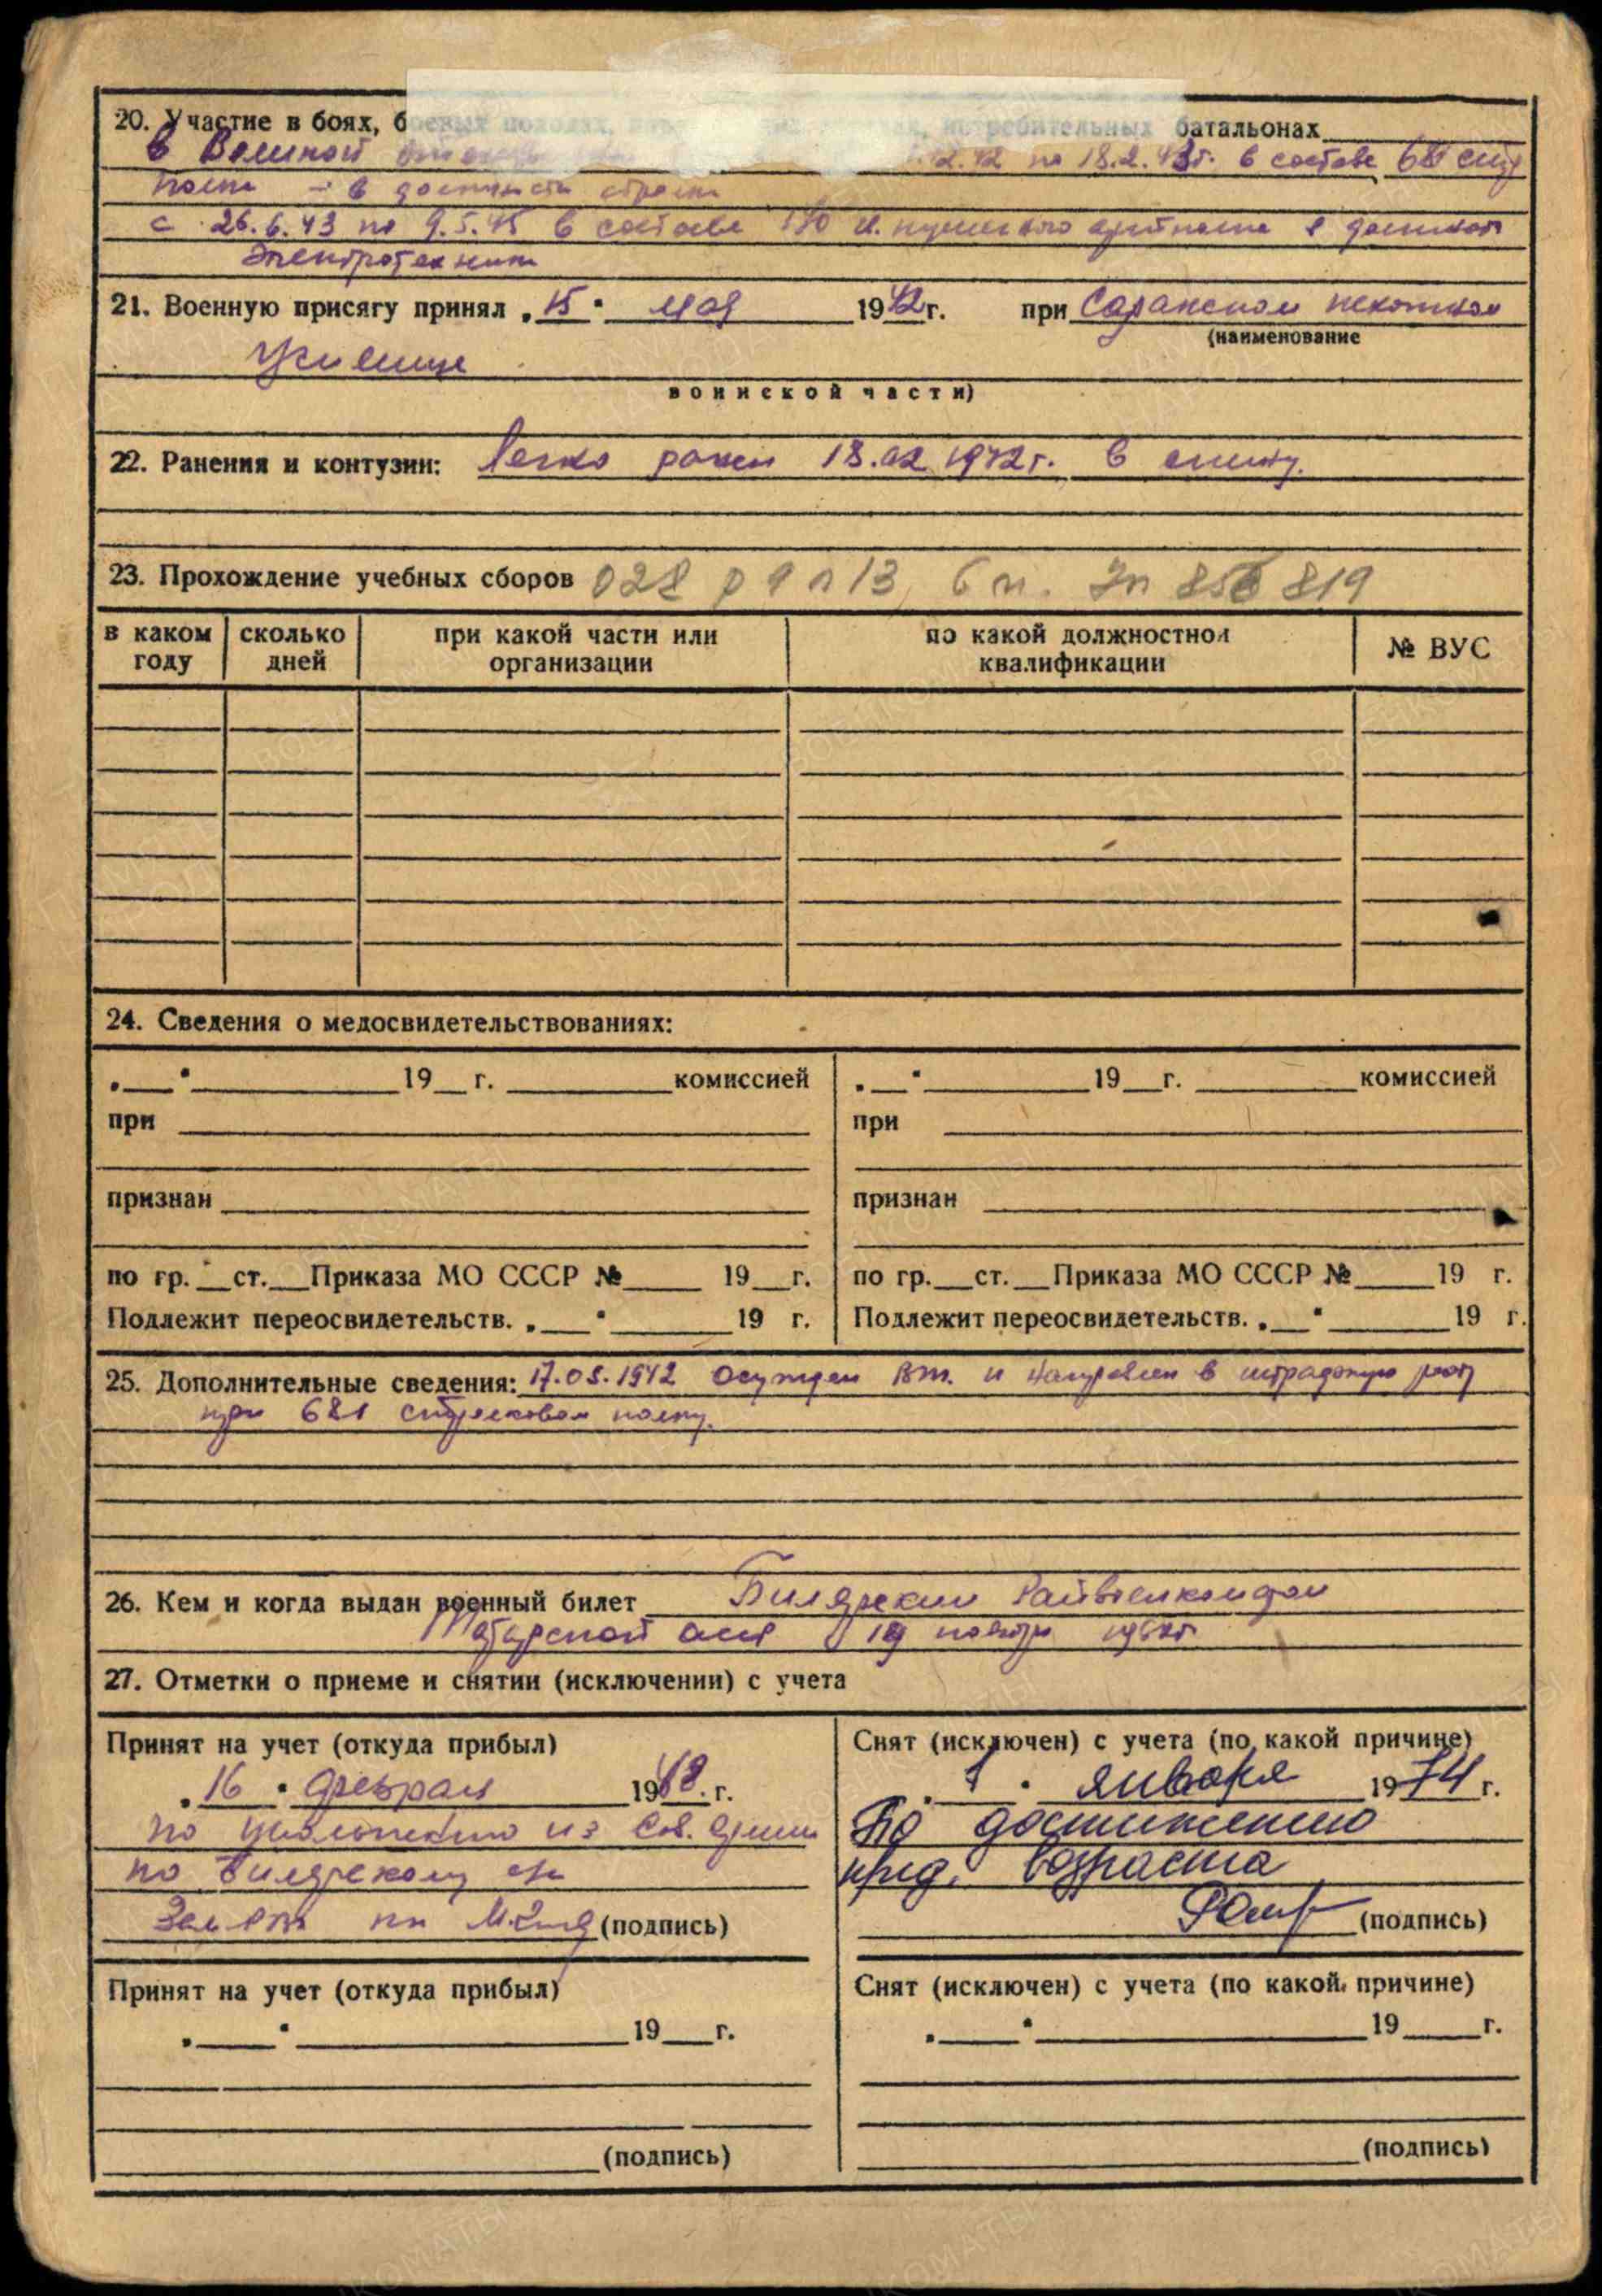 20. Участие в боях, боевых походах, батальонах
в Великой 12.42 по 18.2.43г. в составе
в должности
с 26.6.43 по 9.5.45 в составе в должности
Электротехник
21. Военную присягу принял „15“ мая 1942г. при Саранском пехотном
(наименование
Училище
воинской части)
22. Ранения и контузии: Легко ранен 18.02.1942г. в спину.
23. Прохождение учебных сборов 028 р 9 п 13,
в каком году
сколько дней
при какой части или организации
по какой должностной квалификации
№ ВУС
24. Сведения о медосвидетельствованиях:
„ “ 19 г. комиссией
при
признан
по гр. ст. Приказа МО СССР № 19 г.
Подлежит переосвидетельств. „ “ 19 г.
„ “ 19 г. комиссией
при
признан
по гр. ст. Приказа МО СССР № 19 г.
Подлежит переосвидетельств. „ “ 19 г.
25. Дополнительные сведения: 1942 Осужден В.Т. и направлен в штрафную роту
при 681 стрелковом полку.
26. Кем и когда выдан военный билет Билярским Райвоенкоматом
Татарской АССР 19
27. Отметки о приеме и снятии (исключении) с учета
Принят на учет (откуда прибыл)
„16“ февраля 19 г.
по увольнению из Сов. Армии
по Билярскому
(подпись)
Снят (исключен) с учета (по какой причине)
„1“ января 1974 г.
По достижению
пред. возраста
(подпись)
Принят на учет (откуда прибыл)
„ “ 19 г.
(подпись)
Снят (исключен) с учета (по какой причине)
„ “ 19 г.
(подпись)